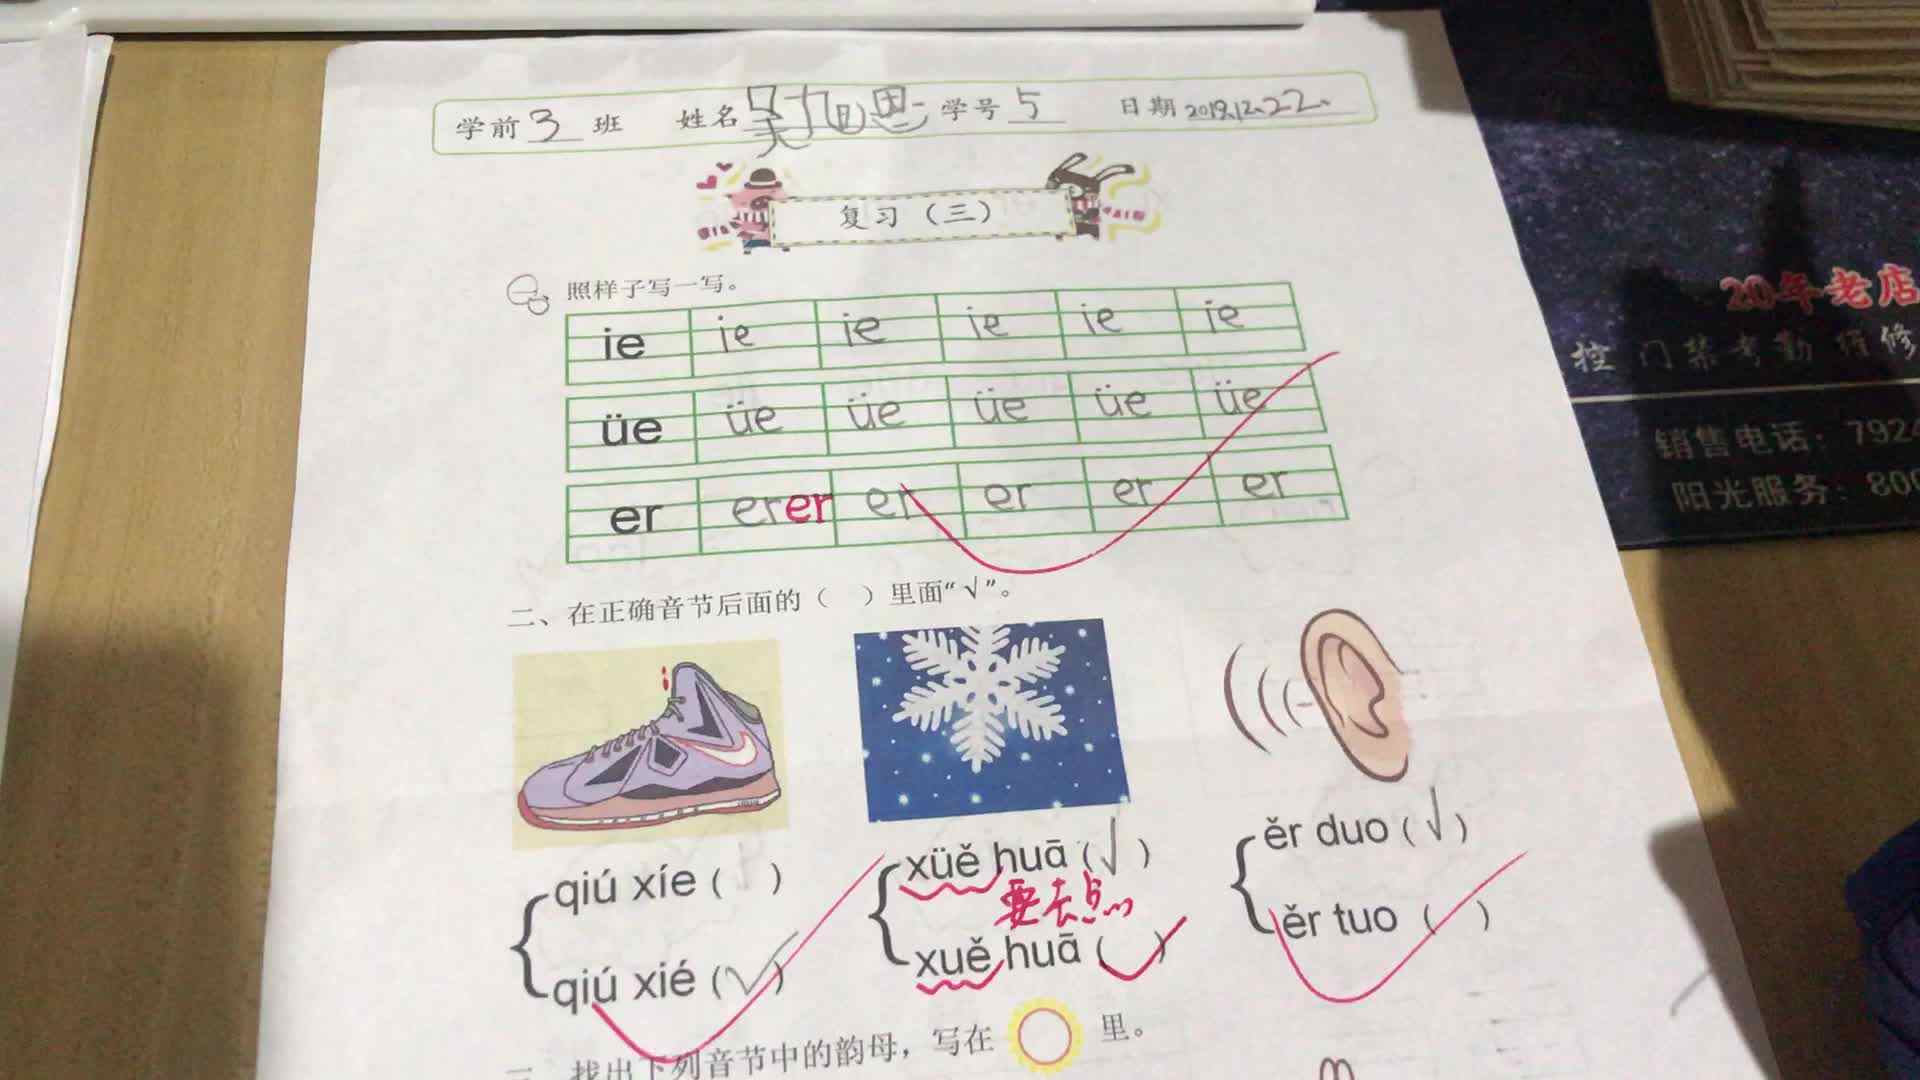 学前3班 姓名吴旭恩 学号5 日期2019.12.22.
复习（三）
一、照样子写一写。
ie ie ie ie ie ie
üe üe üe üe üe üe
er er er er er er er
二、在正确音节后面的（ ）里面“√”。
qiú xíe（ ）
qiú xié（√）
xüě huā（√）
要去点
xuě huā（ ）
ěr duo（√）
ěr tuo（ ）
找出下列音节中的韵母，写在 里。
20年老店
控 门禁考勤 维修
销售电话：7924
阳光服务：800